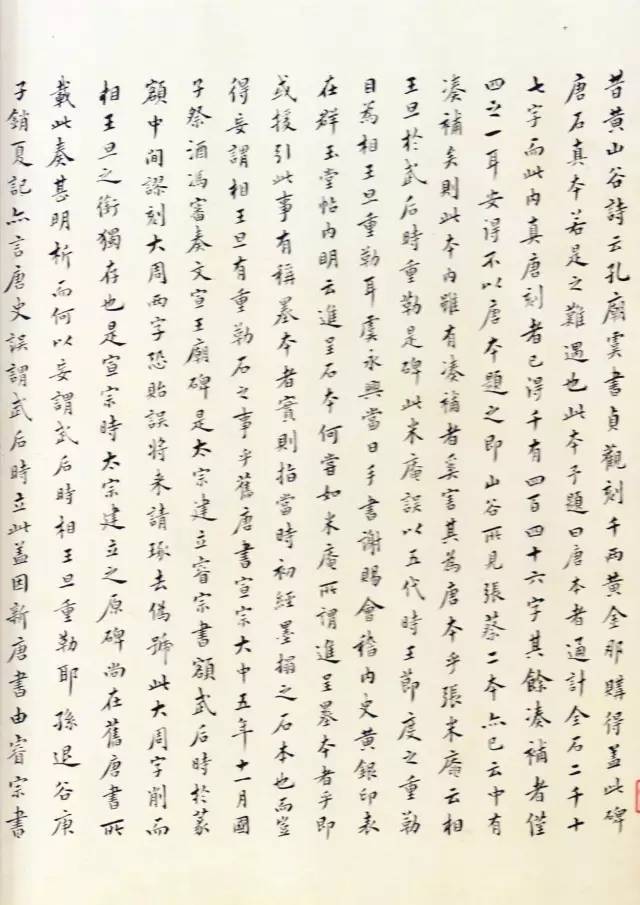 昔黄山谷詩云孔廟虞書貞觀刻千兩黄金那購得蓋此碑
唐石真本若是之難遇也此本予題曰唐本者通計全石二千十
七字而此内真唐刻者已得千有四百四十六字其餘湊補者僅
四之一耳安得不以唐本題之即山谷所見張蔡二本亦已云中有
湊補矣則此本内雖有湊補者奚害其為唐本乎張米庵云相
王旦於武后時重勒是碑此米庵誤以五代時王節度之重勒
目為相王旦重勒耳虞永興當日手書謝賜會稽内史黄銀印表
在群玉堂帖内明云進呈石本何嘗如米庵所謂進呈墨本者乎即
或援引此事有稱墨本者實則指當時初經墨搨之石本也而豈
得妄謂相王旦有重勒石之事乎舊唐書宣宗大中五年十一月國
子祭酒馮審奏文宣王廟碑是太宗建立睿宗書額武后時於篆
額中間謬刻大周兩字恐貽誤將来請琢去偽號此大周字削而
相王旦之銜獨存也是宣宗時太宗建立之原碑尚在舊唐書所
載此奏甚明析而何以妄謂武后時相王旦重勒耶孫退谷庚
子銷夏記亦言唐史誤謂武后時立此蓋因新唐書由睿宗書